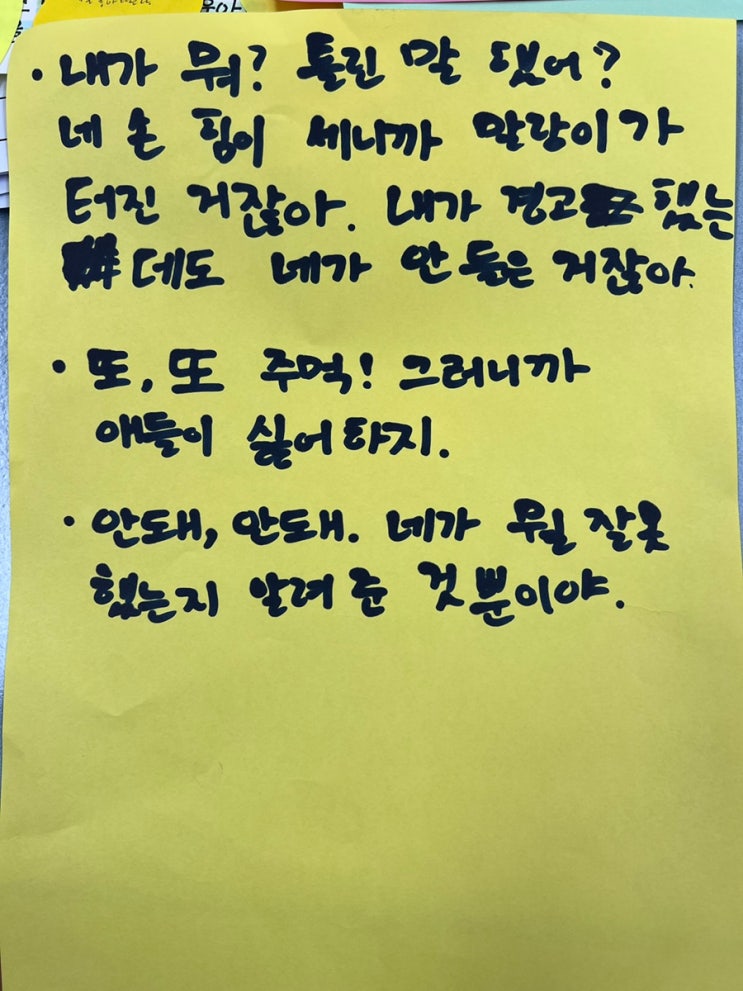 · 내가 뭐? 틀린 말 했어?
네 손 힘이 세니까 말랑이가
터진 거잖아. 내가 경고 했는
데도 네가 안 들은 거잖아.
· 또, 또 주먹! 그러니까
애들이 싫어하지.
· 안돼, 안돼. 네가 뭘 잘못
했는지 알려 준 것 뿐이야.